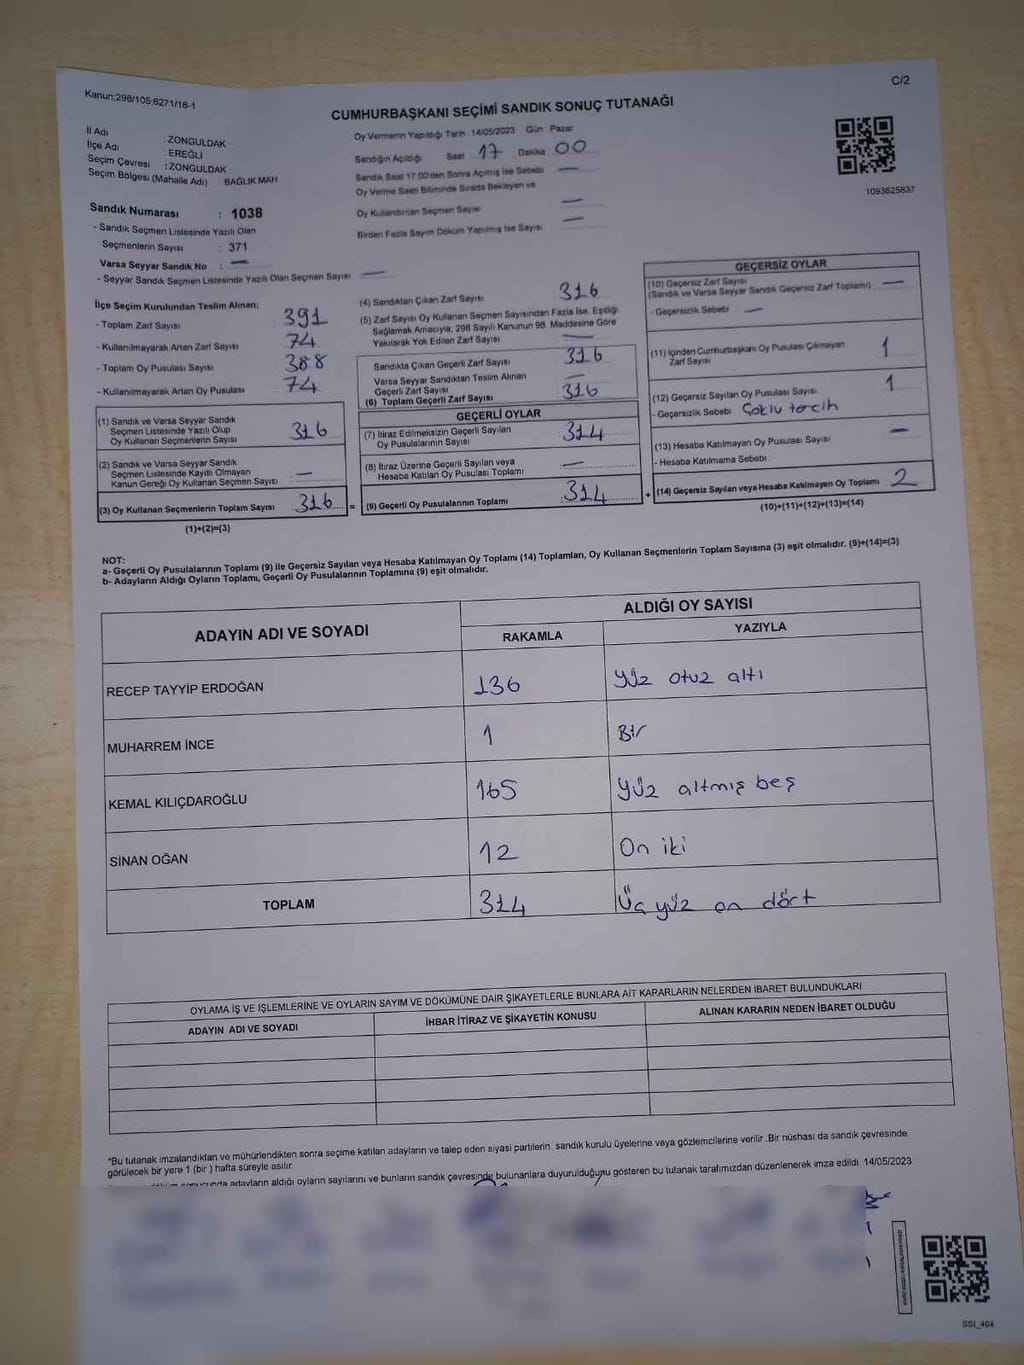 Kanun:298/105,6271/18-1
C/2
CUMHURBAŞKANI SEÇİMİ SANDIK SONUÇ TUTANAĞI
İl Adı : ZONGULDAK
İlçe Adı : EREĞLİ
Seçim Çevresi : ZONGULDAK
Seçim Bölgesi (Mahalle Adı) : BAĞLIK MAH
Sandık Numarası : 1038
- Sandık Seçmen Listesinde Yazılı Olan
Seçmenlerin Sayısı : 371
Varsa Seyyar Sandık No : —
- Seyyar Sandık Seçmen Listesinde Yazılı Olan Seçmen Sayısı —
Oy Vermenin Yapıldığı Tarih : 14/05/2023 Gün : Pazar
Sandığın Açıldığı Saat 17 Dakika 00
Sandık Saat 17:00'den Sonra Açılmış İse Sebebi —
Oy Verme Saati Bitiminde Sırada Bekleyen ve
Oy Kullandırılan Seçmen Sayısı —
Birden Fazla Sayım Döküm Yapılmış İse Sayısı —
1093625837
İlçe Seçim Kurulundan Teslim Alınan;
- Toplam Zarf Sayısı 391
- Kullanılmayarak Artan Zarf Sayısı 74
- Toplam Oy Pusulası Sayısı 388
- Kullanılmayarak Artan Oy Pusulası 74
(1) Sandık ve Varsa Seyyar Sandık
Seçmen Listesinde Yazılı Olup
Oy Kullanan Seçmenlerin Sayısı 316
(2) Sandık ve Varsa Seyyar Sandık
Seçmen Listesinde Kayıtlı Olmayan
Kanun Gereği Oy Kullanan Seçmen Sayısı —
(3) Oy Kullanan Seçmenlerin Toplam Sayısı 316 =
(1)+(2)=(3)
(4) Sandıktan Çıkan Zarf Sayısı 316
(5) Zarf Sayısı Oy Kullanan Seçmen Sayısından Fazla İse, Eşitliği
Sağlamak Amacıyla, 298 Sayılı Kanunun 98. Maddesine Göre
Yakılarak Yok Edilen Zarf Sayısı —
Sandıkta Çıkan Geçerli Zarf Sayısı 316
Varsa Seyyar Sandıktan Teslim Alınan
Geçerli Zarf Sayısı —
(6) Toplam Geçerli Zarf Sayısı 316
GEÇERLİ OYLAR
(7) İtiraz Edilmeksizin Geçerli Sayılan
Oy Pusulalarının Sayısı 314
(8) İtiraz Üzerine Geçerli Sayılan veya
Hesaba Katılan Oy Pusulası Toplamı —
(9) Geçerli Oy Pusulalarının Toplamı 314 +
GEÇERSİZ OYLAR
(10) Geçersiz Zarf Sayısı
(Sandık ve Varsa Seyyar Sandık Geçersiz Zarf Toplamı) —
- Geçersizlik Sebebi —
(11) İçinden Cumhurbaşkanı Oy Pusulası Çıkmayan
Zarf Sayısı 1
(12) Geçersiz Sayılan Oy Pusulası Sayısı 1
- Geçersizlik Sebebi Çoklu tercih
(13) Hesaba Katılmayan Oy Pusulası Sayısı —
- Hesaba Katılmama Sebebi :
(14) Geçersiz Sayılan veya Hesaba Katılmayan Oy Toplamı 2
(10)+(11)+(12)+(13)=(14)
NOT:
a- Geçerli Oy Pusulalarının Toplamı (9) ile Geçersiz Sayılan veya Hesaba Katılmayan Oy Toplamı (14) Toplamları, Oy Kullanan Seçmenlerin Toplam Sayısına (3) eşit olmalıdır. (9)+(14)=(3)
b- Adayların Aldığı Oyların Toplamı, Geçerli Oy Pusulalarının Toplamına (9) eşit olmalıdır.
ADAYIN ADI VE SOYADI ALDIĞI OY SAYISI
RAKAMLA YAZIYLA
RECEP TAYYİP ERDOĞAN 136 Yüz otuz altı
MUHARREM İNCE 1 Bir
KEMAL KILIÇDAROĞLU 165 Yüz altmış beş
SİNAN OĞAN 12 On iki
TOPLAM 314 Üç yüz on dört
OYLAMA İŞ VE İŞLEMLERİNE VE OYLARIN SAYIM VE DÖKÜMÜNE DAİR ŞİKAYETLERLE BUNLARA AİT KARARLARIN NELERDEN İBARET BULUNDUKLARI
ADAYIN ADI VE SOYADI İHBAR İTİRAZ VE ŞİKAYETİN KONUSU ALINAN KARARIN NEDEN İBARET OLDUĞU
*Bu tutanak imzalandıktan ve mühürlendikten sonra seçime katılan adayların ve talep eden siyasi partilerin sandık kurulu üyelerine veya gözlemcilerine verilir .Bir nüshası da sandık çevresinde
görülecek bir yere 1 (bir ) hafta süreyle asılır.
sonucunda adayların aldığı oyların sayılarını ve bunların sandık çevresinde bulunanlara duyurulduğunu gösteren bu tutanak tarafımızdan düzenlenerek imza edildi. 14/05/2023
SSI_404